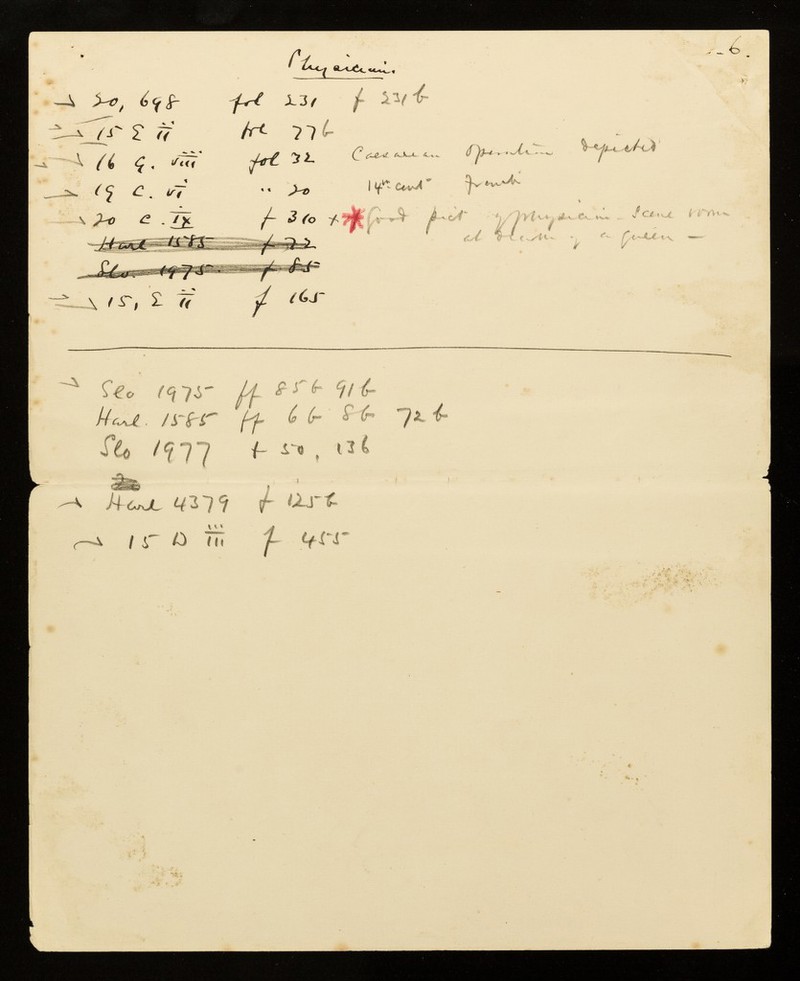 6.
Physicians.
20, 698 fol 231 f 231 b
15 E ii fol 77b
16 G. viii fol 32 Caesarean Operation depicted
19 C. vi " 20 14th cent French
20 C. ix f 310 x * Good pict of physician - Scene room
at death of a Queen —
Harl 1585 f 72
Slo. 1975. f 85
15, E ii f 165
Slo 1975 ff 85b 91b
Harl. 1585 ff 6b 8b 72b
Slo 1977 f 50,
Harl 4379 f 125b
15 D iii f 455